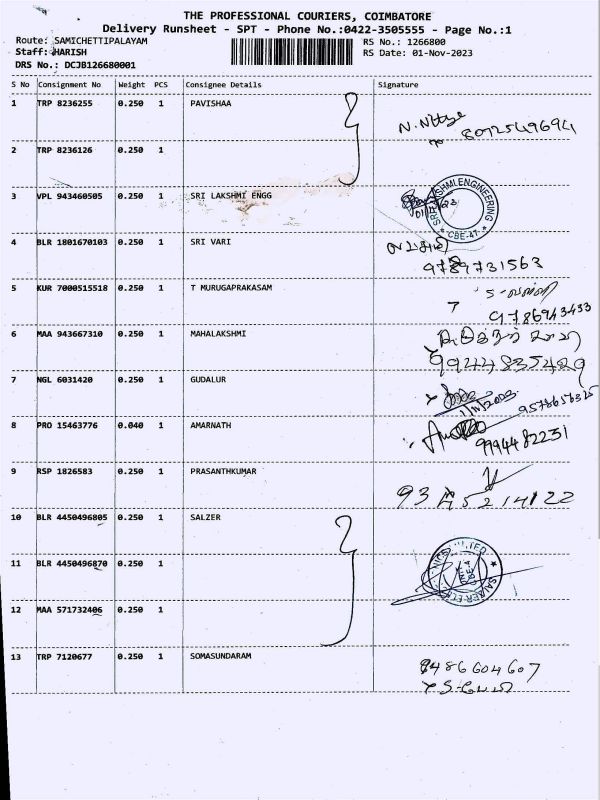 THE PROFESSIONAL COURIERS, COIMBATORE
Delivery Runsheet - SPT - Phone No.:0422-3505555 - Page No.:1
Route: SAMICHETTIPALAYAM RS No.: 1266800
Staff: HARISH RS Date: 01-Nov-2023
DRS No.: DCJB126680001
S No Consignment No Weight PCS Consignee Details Signature
1 TRP 8236255 0.250 1 PAVISHAA N. Nithya
8072549694
2 TRP 8236126 0.250 1
3 VPL 943460505 0.250 1 SRI LAKSHMI ENGG SRI LAKSHMI ENGINEERING * CBE-47 *
4 BLR 1801670103 0.250 1 SRI VARI
9789731563
5 KUR 7000515518 0.250 1 T MURUGAPRAKASAM
9786943433
6 MAA 943667310 0.250 1 MAHALAKSHMI
9944835429
7 NGL 6031420 0.250 1 GUDALUR
1/11/2023 9578656325
8 PRO 15463776 0.040 1 AMARNATH
9994482231
9 RSP 1826583 0.250 1 PRASANTHKUMAR
10 BLR 4450496805 0.250 1 SALZER
11 BLR 4450496870 0.250 1
12 MAA 571732406 0.250 1
13 TRP 7120677 0.250 1 SOMASUNDARAM
9486604607